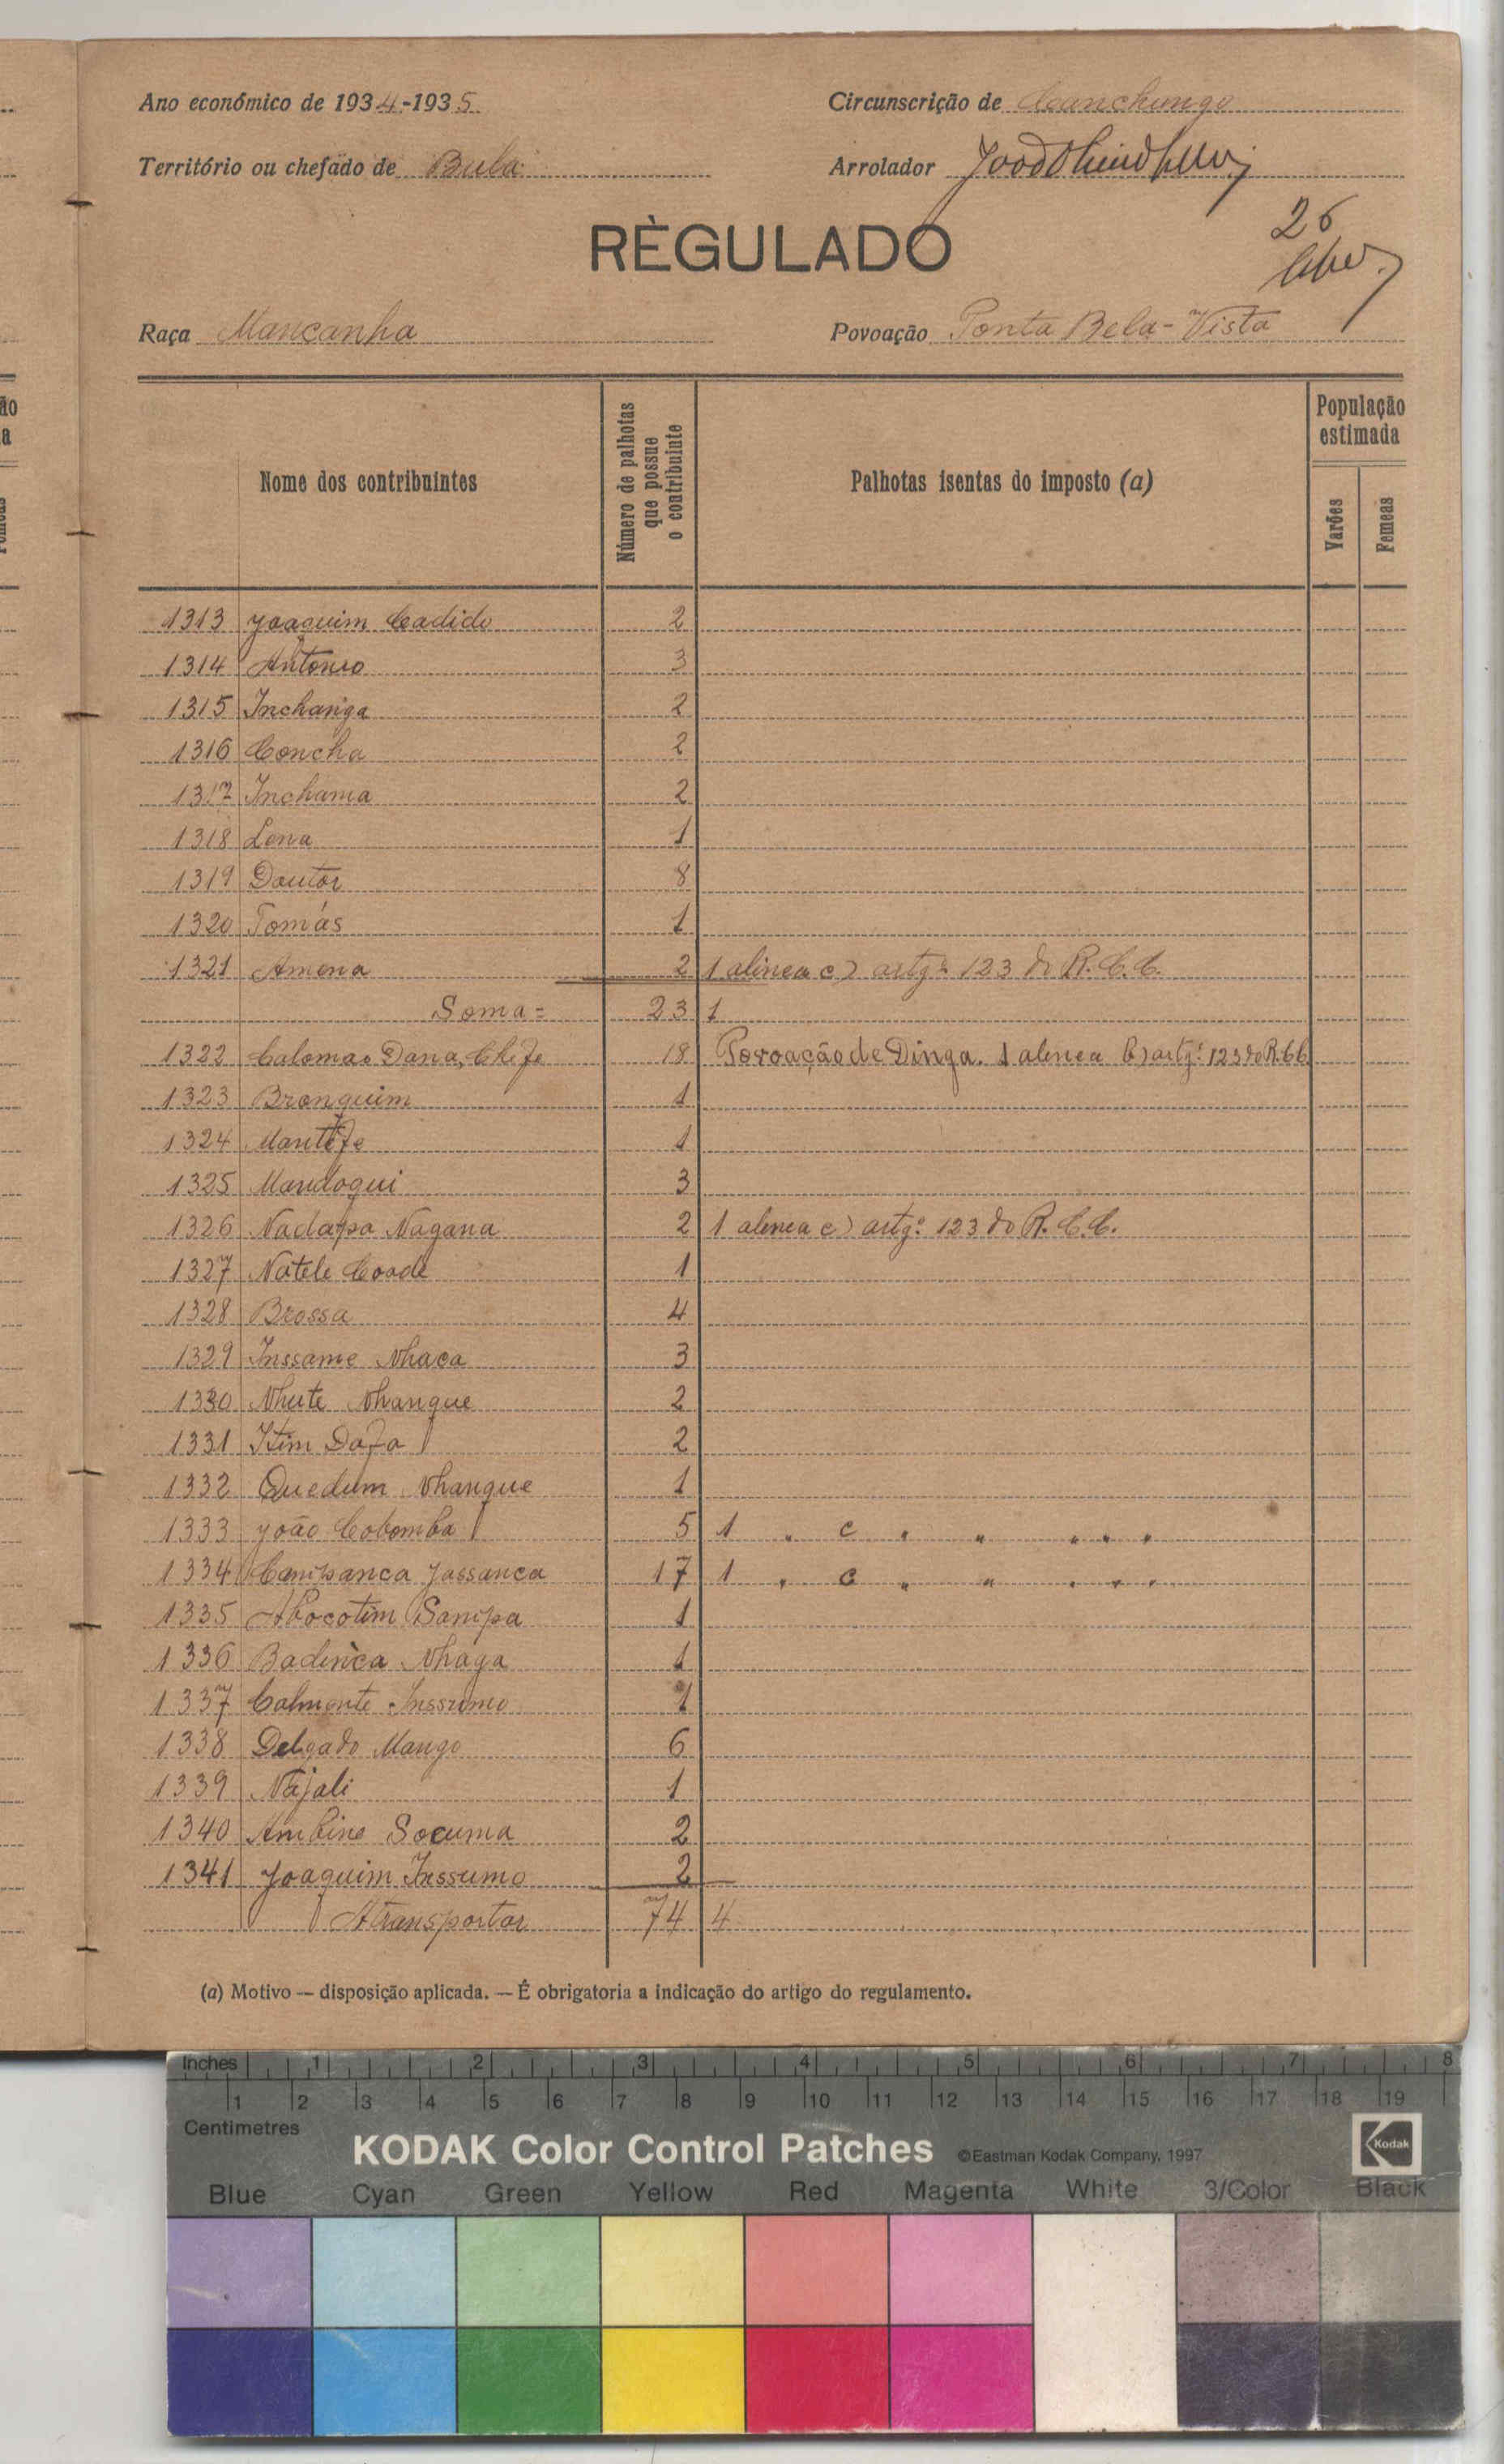 Ano económico de 1934-1935 Circunscrição de Canchungo
Território ou chefado de Bula Arrolador
26
RÈGULADO
Raça Mancanha Povoação Ponta Bela-Vista
Nome dos contribuintes Número de palhotas que possue o contribuinte Palhotas isentas do imposto (a) População estimada Varões Femeas
1313 Joaquim Cadido 2
1314 Antonio 3
1315 Inchanga 2
1316 Concha 2
1317 Inchama 2
1318 Lona 1
1319 Doutor 8
1320 Tomás 1
1321 Amona 2 1 alinea c) artgº 123 do R.C.C.
Soma = 23 1
1322 Calomao Dana, Chefe 18 Povoação de Dinga. 1 alenea b) artgº 123 do R.C.C.
1323 Bronquim 1
1324 Mantefe 1
1325 Mandoqui 3
1326 Nadafa Nagana 2 1 alenea c) artgº 123 do R.C.C.
1327 Natele Coode 1
1328 Brossa 4
1329 Inssame Nhaca 3
1330 Nhute Nhangue 2
1331 Itim Dafa 2
1332 Quedum Nhangue 1
1333 João Cobomba 5 1 " c " " " " "
1334 Campanca Jassanca 17 1 " c " " " " "
1335 Abocotim Sampa 1
1336 Badinca Nhaga 1
1337 Calmonte Inssumo 1
1338 Delgado Mango 6
1339 Najali 1
1340 Ambine Socuma 2
1341 Joaquim Inssumo 2
A transportar 74 4
(a) Motivo — disposição aplicada. — É obrigatoria a indicação do artigo do regulamento.
Inches 1 2 3 4 5 6 7 8
1 2 3 4 5 6 7 8 9 10 11 12 13 14 15 16 17 18 19
Centimetres
KODAK Color Control Patches ©Eastman Kodak Company, 1997 Kodak
Blue Cyan Green Yellow Red Magenta White 3/Color Black